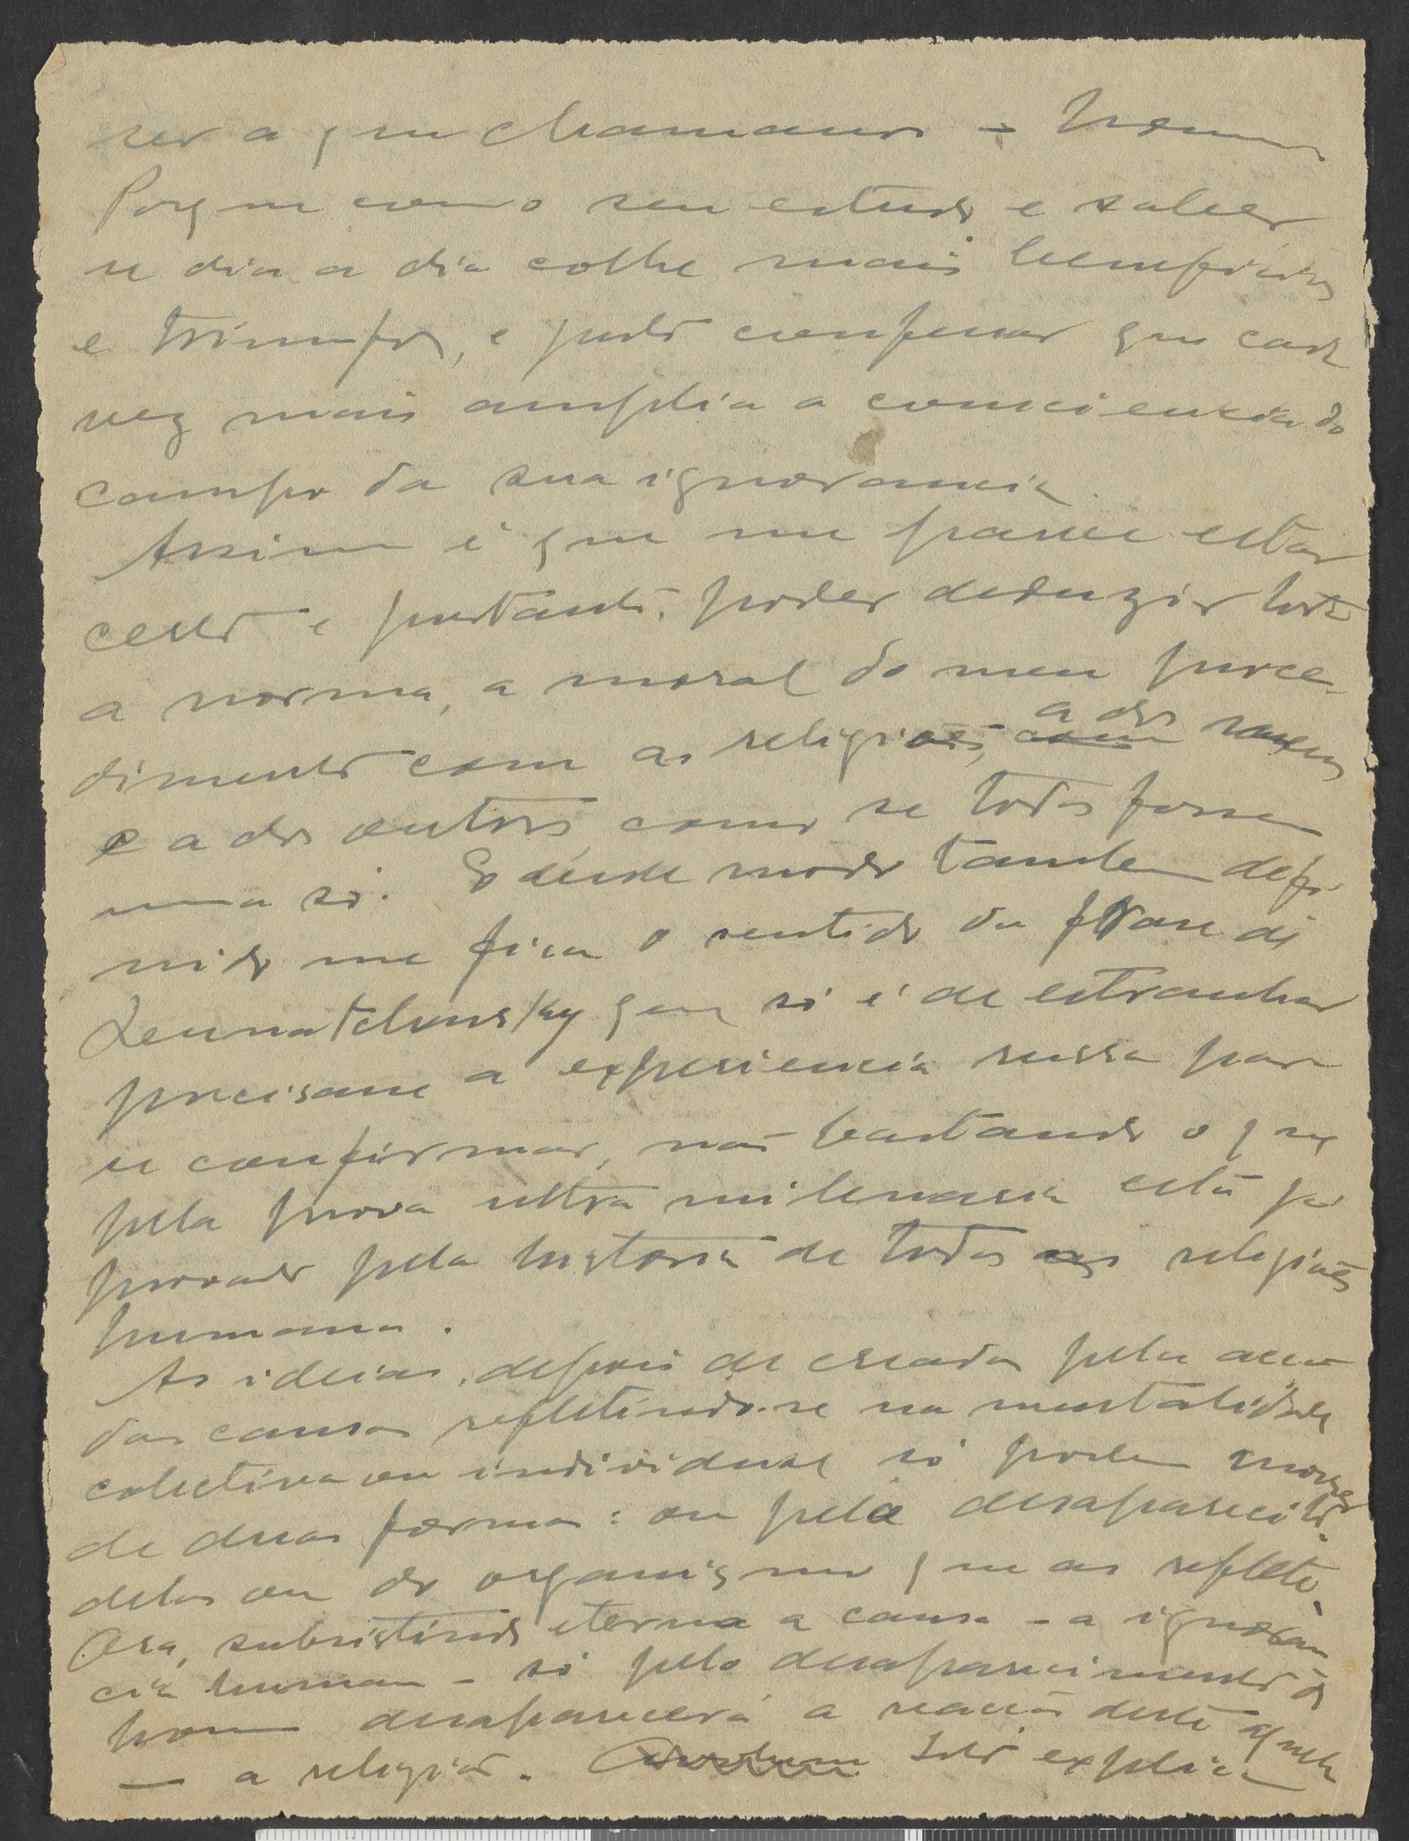 ser a que chamamos - Homem
Porque com o seu estudo e saber
se dia a dia colhe mais beneficios
e triumfos, é justo confessar que cada
vez mais amplia a consciencia do
campo da sua ignorancia.
Assim é que me parece estar
certo e portanto, poder deduzir toda
a norma, a moral do meu proce-
dimento com as religiões, a dos
e a dos outros, como se todas fossem
uma só. E desse modo tambem defi-
nido me fica o sentido da frase de
Lunatcharsky que só é de estranhar
precisasse a experiencia russa para
se confirmar, não bastando o que
pela prova ultra milenaria está já
provado pela historia de todas as religiões
humanas.
As ideias, depois de creadas pela acção
das causas refletindo-se na mentalidade
colectiva ou individual só podem morrer
de duas formas: ou pelo desaparecito.
delas ou do organismo que as reflete.
Ora, subsistindo eterna a causa - a ignoran
cia humana - só pelo desaparecimento do
homem desaparecerá a reacção deste aquela
— a religião. Isto explica